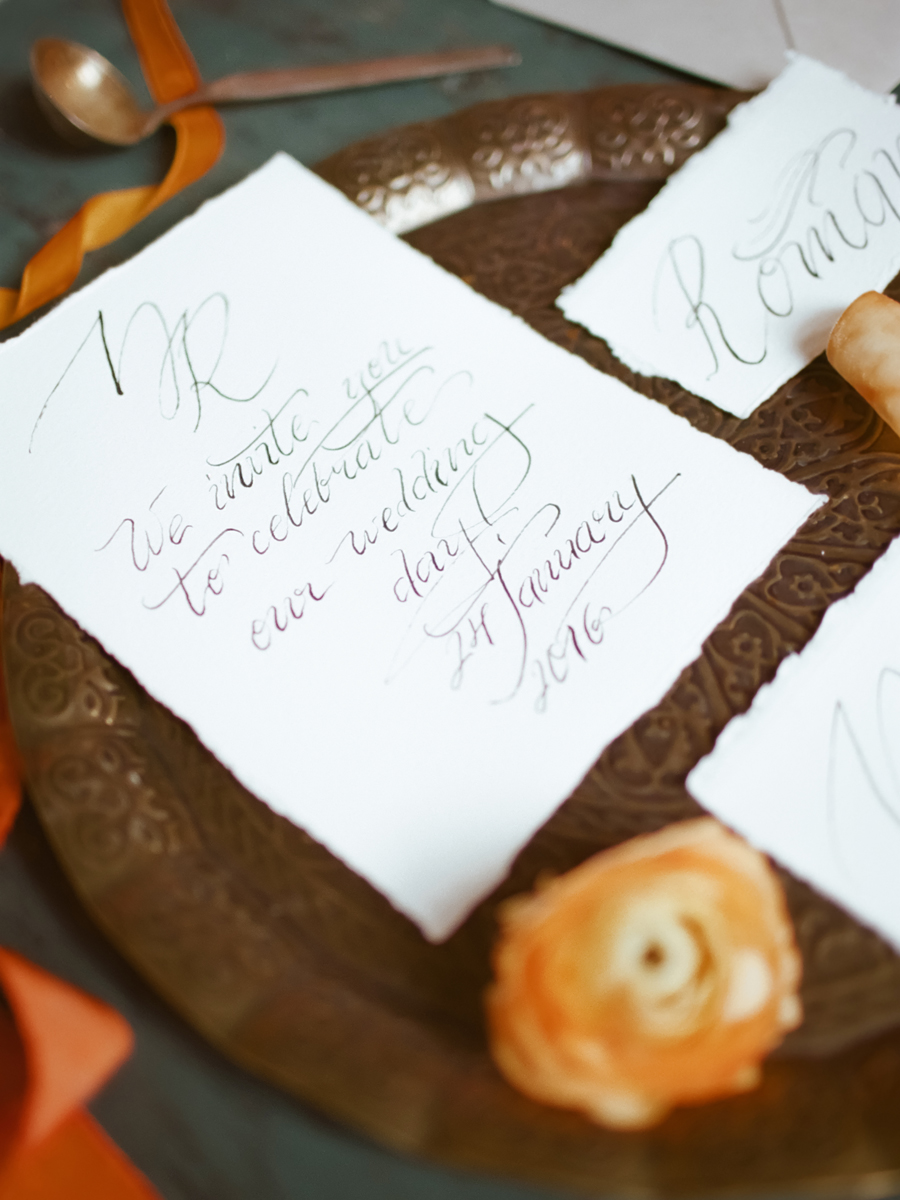 NR
We invite you
to celebrate
our wedding
day
24 January
2016
Roman